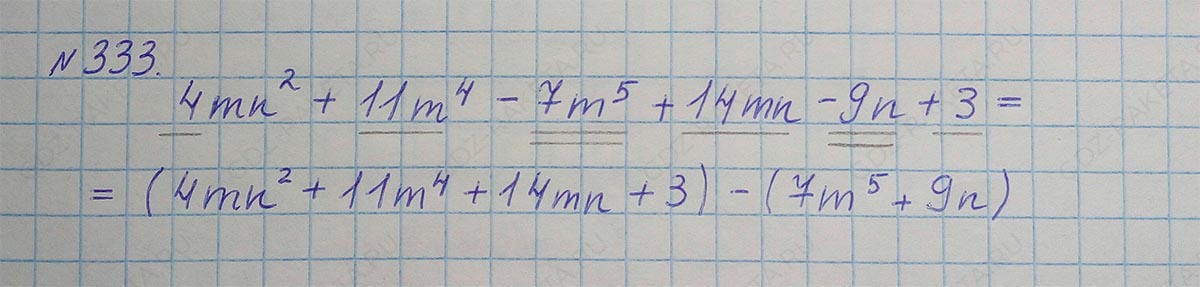 N 333.
4mn² + 11m⁴ - 7m⁵ + 14mn - 9n + 3 =
= (4mn² + 11m⁴ + 14mn + 3) - (7m⁵ + 9n)